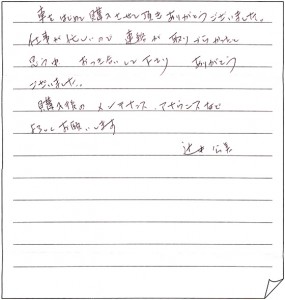 車をはじめて購入させて頂きありがとうございました。
仕事が忙しいので連絡が取りづらかったと
思うが お付き合いして下さり ありがとう
ございました。
購入後の メンテナンス、アナウンスなど
よろしくお願いします